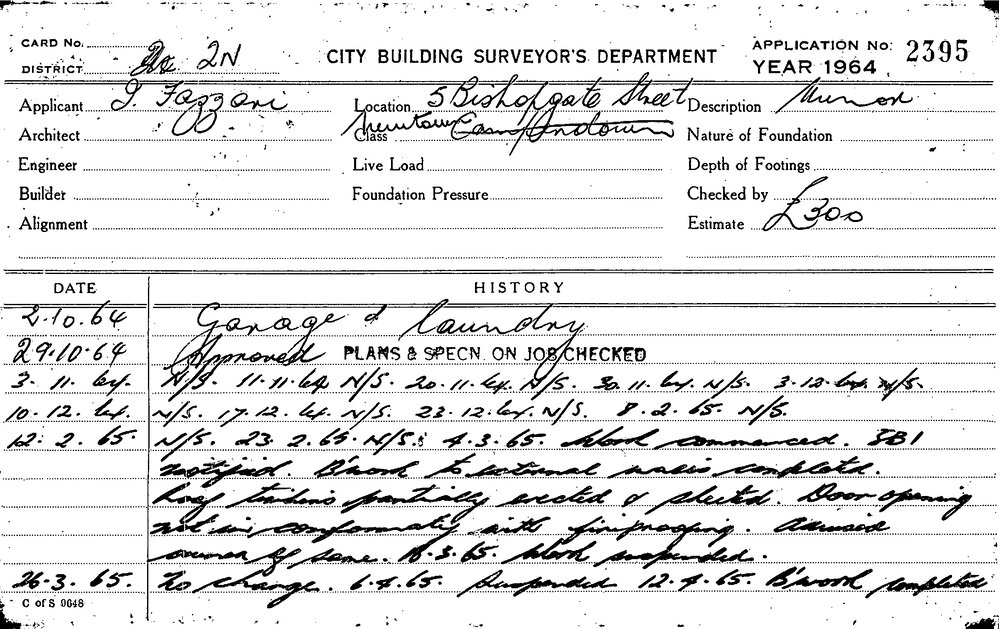 CARD No. CITY BUILDING SURVEYOR'S DEPARTMENT APPLICATION No: 2395
DISTRICT 2N YEAR 1964
Applicant J. Fazzari Location 5 Bishopgate Street Description Minor
Architect Newtown Class Camperdown Nature of Foundation
Engineer Live Load Depth of Footings
Builder Foundation Pressure Checked by
Alignment Estimate £300
DATE HISTORY
2.10.64 Garage & laundry
29.10.64 Approved PLANS & SPECN. ON JOB CHECKED
3. 11. 64. N/S. 11.11.64 N/S. 20.11.64. N/S. 30.11.64. N/S. 3.12.64 N/S.
10. 12. 64. N/S. 17.12.64. N/S. 23.12.64. N/S. 8.2.65. N/S.
12. 2. 65. N/S. 23.2.65. N/S. 4.3.65. Work commenced. SBI
notified. B'work to external walls completed.
Roof timbers partially erected & sheeted. Door opening
not in conformity with fireproofing. Advised
owner of same. 18.3.65. Work suspended.
26.3.65. No change. 6.4.65. Suspended 12.4.65. B'work completed
C of S 9648